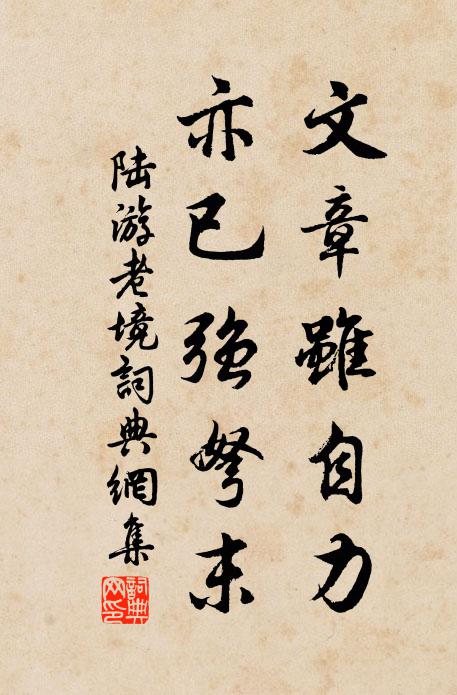 文章雖自力
亦已強弩末
陆游老境詞典網集
詞典网印